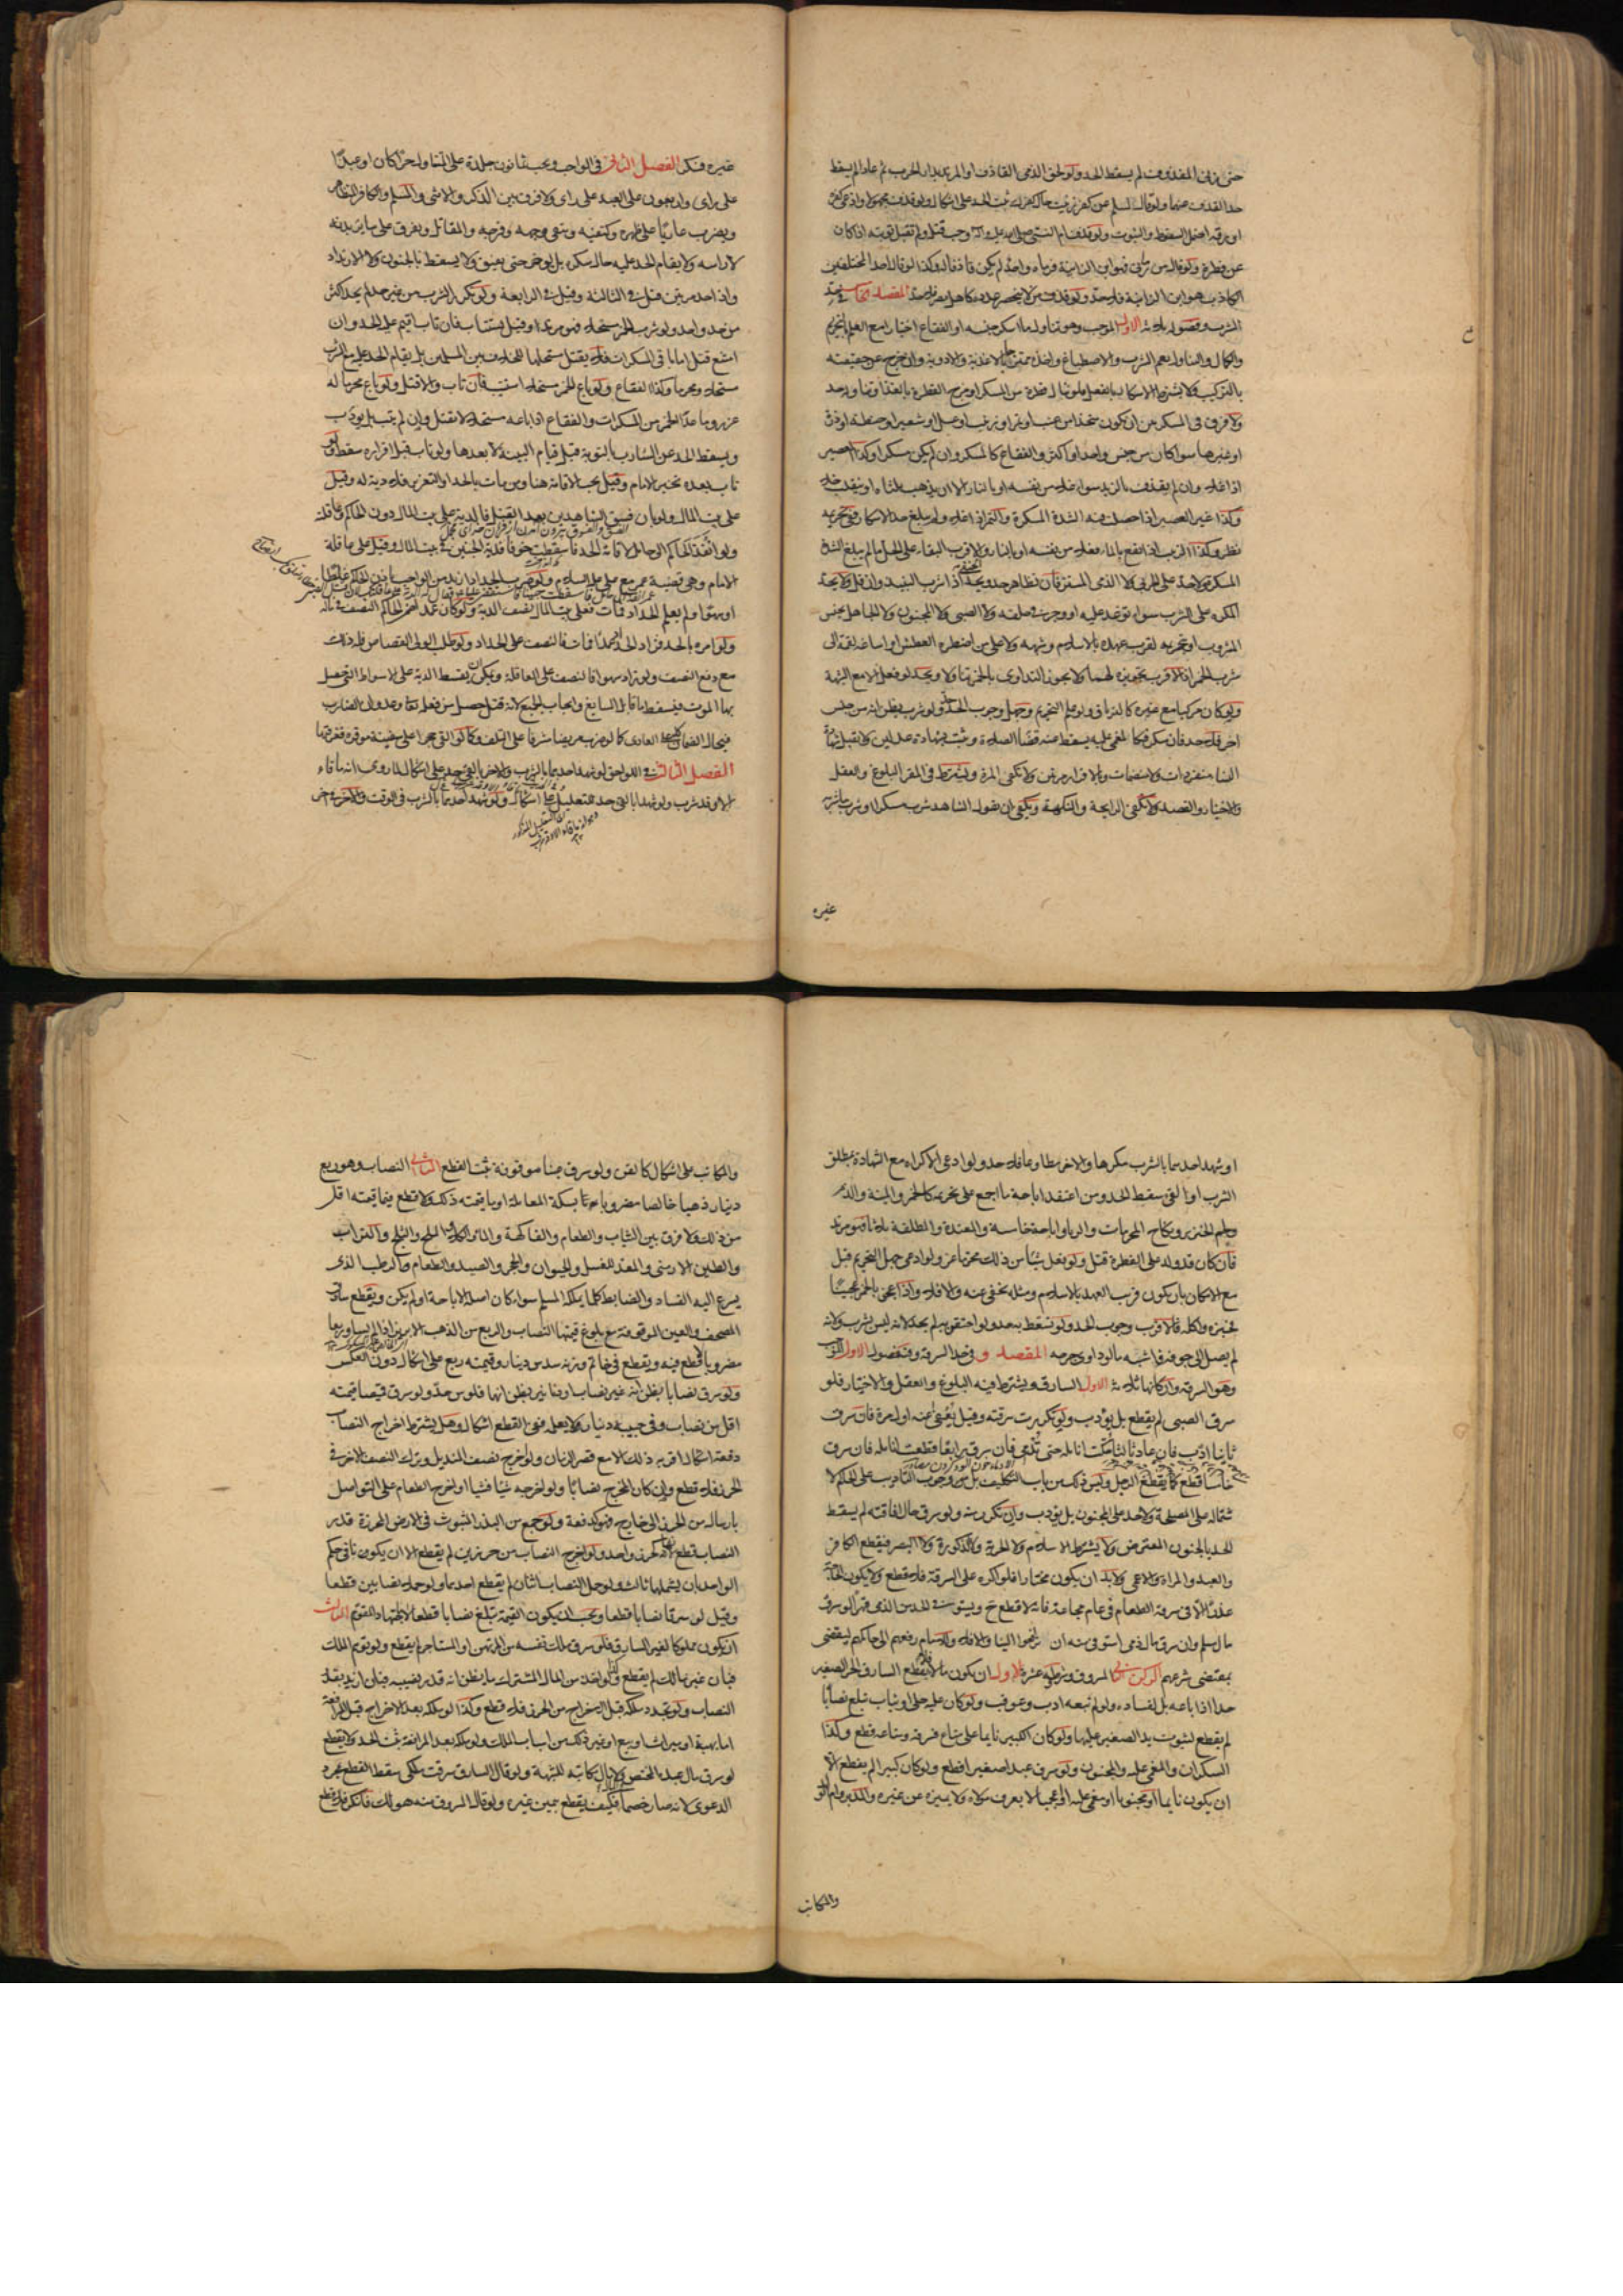 حتى زنى المقذوف لم يسقط الحد ولو لحق الذمى القاذف او المرتد بدار الحرب ثم عاد لم يسقط
حد القذف عنهما ولو قال لمسلم عن كفر زنيت حال كفرك ثبت الحد على اشكال ولو قذف مجهولا وادعى كفره
او رقه احتمل السقوط والثبوت ولو قذف ام النبى صلى الله عليه وآله وجب قتله ولم تقبل توبته اذا كان
عن فطرة ولو قال من رمانى فهو ابن الزانية فرماه واحد لم يكن قاذفا له وكذا لو قال احد المختلفين
الكاذب هو ابن الزانية فلا حد ولو قذف من لا ينحصر عدده كاهل مصر فلا حد المقصد الخامس فى حد
الشرب وفصوله ثلاثة الاول الموجب وهو تناول ما اسكر جنسه او الفقاع اختيارا مع العلم بالتحريم
والكمال والتناول يعم الشرب والاصطباغ واخذه ممتزجا بالاغذية والادوية وان خرج عن حقيقته
بالتركيب ولا يشترط الاسكار بالفعل فلو تناول قطرة من المسكر او مزج القطرة بالغذا وتناوله حد
ولا فرق فى المسكر بين ان يكون متخذا من عنب او تمر او زبيب او عسل او شعير او حنطة او ذرة
او غيرها سوا كان من جنس واحد او اكثر والفقاع كالمسكر وان لم يكن مسكرا وكذا العصير
اذا غلا وان لم يقذف بالزبد سوا غلا من نفسه او بالنار الا ان يذهب ثلثاه او ينقلب خلا
وكذا غير العصير اذا حصلت فيه الشدة المسكرة والتمر اذا غلا ولم يبلغ حد الاسكار ففى تحريمه
نظر وكذا الزبيب اذا نقع بالماء فغلا من نفسه او بالنار والاقرب البقاء على الحل ما لم يبلغ الشدة
المسكرة ولا حد على الحربى ولا الذمى المستتر فان تظاهر حد ويحد الحنفى اذا شرب النبيذ وان قل ولا يحد
المكره على الشرب سوا توعد عليه او وجر فى حلقه ولا الصبى ولا المجنون ولا الجاهل بجنس
المشروب او تحريمه لقرب عهده بالاسلام وشبهه ولا على من اضطره العطش او اساغة لقمة الى
شرب الخمر اذ الاقرب تجويزه لهما ولا يجوز التداوى بالخمر تناولا ويحد لو فعل لا مع الشبهة
ولو كان مركبا مع غيره كالترياق ولو علم التحريم وجهل وجوب الحد حد ولو شرب بظن انه من جنس
اخر فلا حد فان سكر فكالمغمى عليه يسقط عنه قضا الصلوة ويثبت بشهادة عدلين ولا تقبل شهادة
النسا منفردات ولا منضمات وبالاقرار مرتين ولا تكفى المرة ويشترط فى المقر البلوغ والعقل
والاختيار والقصد ولا تكفى الرايحة والنكهة ويكفى ان يقول الشاهد شرب مسكرا او شرب ما شربه
غيره
غيره فسكر الفصل الثانى فى الواجب ويجب ثمانون جلدة على المتناول حرا كان او عبدا
على راى واربعون على العبد على راى ولا فرق بين الذكر والانثى والمسلم والكافر المتظاهر
ويضرب عاريا على ظهره وكتفيه ويتقى وجهه وفرجه والمقاتل ويفرق على ساير بدنه
لا راسه ولا يقام الحد عليه حال سكره بل يوخر حتى يفيق ولا يسقط بالجنون ولا الارتداد
واذا حد مرتين قتل فى الثالثة وقيل فى الرابعة ولو تكرر الشرب من غير حد لم يحد اكثر
من حد واحد ولو شرب الخمر مستحلا فهو مرتد او قيل يستتاب فان تاب اقيم عليه الحد وان
امتنع قتل اما باقى المسكرات فلا يقتل مستحلها للخلاف بين المسلمين بل يقام الحد عليه مع الشرب
مستحلا ومحرما وكذا الفقاع ولو باع الخمر مستحلا استتيب فان تاب والا قتل ولو باع محرما له
عزر وما عدا الخمر من المسكرات والفقاع اذا باعه مستحلا لا يقتل وان لم يتب بل يودب
ويسقط الحد عن الشارب بالتوبة قبل قيام البينة لا بعدها ولو تاب قبل اقراره سقط ولو
تاب بعده تخير الامام وقيل يجب الاقامة هنا ومن مات بالحد او التعزير فلا دية له وقيل
على بيت المال ولو بان فسق الشاهدين بعد القتل فالدية على بيت المال دون الحاكم وعاقلته
ولو انفذ الحاكم الى حامل لاقامة الحد فاسقطت خوفا فدية الجنين فى بيت المال وقيل على عاقلة
الامام وهى قضية عمر مع على عليه السلام ولو ضرب الحداد ازيد من الواجب باذن الحاكم غلطا
او سهوا ولم يعلم الحداد فمات فعلى بيت المال نصف الدية ولو كان عمدا ضمن الحاكم النصف فى ماله
ولو امره بالحد فزاد الحداد عمدا فمات فالنصف على الحداد ولو طلب الولى القصاص فله ذلك
مع دفع النصف ولو زاد سهوا فالنصف على العاقلة ويمكن ان يقسط الدية على الاسواط التى حصل
بها الموت فيسقط ما قابل السايغ وايجاب الجميع لانه قتل حصل من فعله تعالى وعدوان الضارب
فيحال الضمان كله على العادى كما لو ضرب مريضا مشرفا على التلف وكما لو القى حجرا على سفينة موقرة فغرقها
الفصل الثالث فى اللواحق لو شهد احدهما بالشرب والاخر بالقى حد على اشكال لما روى انه ما قاء
الا وقد شرب ولو شهدا بالقى حد للتعليل على اشكال ولو شهد احدهما بالشرب فى الوقت والاخر فى اخر
او شهد احدهما بالشرب مكرها والاخر مطاوعا فلا حد ولو ادعى الاكراه مع الشهادة بمطلق
الشرب او القى سقط الحد ومن اعتقد اباحة ما اجمع على تحريمه كالخمر والميتة والدم
ولحم الخنزير ونكاح المحرمات والربا واباحة خامسة والمعتدة والمطلقة ثلاثا فهو مرتد
فان كان قد ولد على الفطرة قتل ولو فعل شيئا من ذلك محرما عزر ولو ادعى جهل التحريم قبل
مع الامكان بان يكون قريب العهد بالاسلام ومثله يخفى عنه والا فلا واذا عجن بالخمر عجينا
فخبزه واكله فالاقرب وجوب الحد ولو تسعط به حد ولو احتقن به لم يحد لانه ليس بشرب ولانه
لم يصل الى جوفه فاشبه ما لو داوى به جرحه المقصد و فى حد السرقة وفيه فصول الاول الموجب
وهو السرقة واركانها ثلاثة الاول السارق ويشترط فيه البلوغ والعقل والاختيار فلو
سرق الصبى لم يقطع بل يؤدب ولو تكررت سرقته وقيل يعفى عنه اول مرة فان سرق
ثانيا ادب فان عاد ثالثا حكت انامله حتى تدمى فان سرق رابعا قطعت انامله فان سرق
خامسا قطع كما يقطع الرجل وليس ذلك من باب التكليف بل من وجوب التاديب على الحاكم لا
شتماله على المصلحة ولا حد على المجنون بل يؤدب وان تكرر منه ولو سرق حال افاقته لم يسقط
الحد بالجنون المعترض ولا يشترط الاسلام ولا الحرية ولا الذكورة ولا البصر فيقطع الكافر
والعبد والمراة والاعمى ولا بد ان يكون مختارا فلو اكره على السرقة فلا قطع ولا يكون الحاجة
عذرا الا فى سرقة الطعام فى عام مجاعة فانه لا قطع ح ويستوفى الحد من الذمى قهرا لو سرق
مال مسلم وان سرق مال ذمى استوفى منه ان ترافعوا الينا والا فلا وللامام رفعهم الى حاكمهم ليقضى
بمقتضى شرعهم الركن الثانى المسروق وشروطه عشرة الاول ان يكون مالا فلا يقطع السارق الحر الصغير
حدا اذا باعه بل لفساده ولو لم يبعه ادب وعوقب ولو كان عليه حلى او ثياب تبلغ نصابا
لم يقطع لثبوت يد الصغير عليها ولو كان الكبير نايما على متاع فسرقه ومتاعه قطع وكذا
السكران والمغمى عليه والمجنون ولو سرق عبدا صغيرا قطع ولو كان كبيرا لم يقطع الا
ان يكون نايما او مجنونا او مغمى عليه او اعجميا لا يعرف مولاه ولا يميزه عن غيره والمدبر وام الولد
والمكاتب
والمكاتب على اشكال كالقن ولو سرق عينا موقوفة ثبت القطع الثانى النصاب وهو ربع
دينار ذهبا خالصا مضروبا بسكة المعاملة او ما قيمته ذلك ولا قطع فيما قيمته اقل
من ذلك ولا فرق بين الثياب والطعام والفاكهة والماء والكلاء والملح والثلج والتراب
والطين الارمنى والمعد للغسل والحيوان والحجر والصيد والطعام الرطب الذى
يسرع اليه الفساد والضابط كلما يملكه المسلم سوا كان اصله الاباحة او لم يكن ويقطع سارق
المصحف والعين الموقوفة مع بلوغ قيمتها النصاب والربع من الذهب الابريز اذا لم يساو ربعا
مضروبا قطع فيه ويقطع فى خاتم وزنه سدس دينار وقيمته ربع على اشكال دون العكس
ولو سرق نصابا بظن انه غير نصاب او دنانير بظن انها فلوس حد ولو سرق قميصا قيمته
اقل من نصاب وفى جيبه دينار ولا يعلمه ففى القطع اشكال وهل يشترط اخراج النصاب
دفعة اشكال اقربه ذلك الا مع قصر الزمان ولو اخرج نصف المنديل وترك النصف الاخر فى
الحرز فلا قطع وان كان المخرج نصابا ولو اخرجه شيئا فشيئا او اخرج الطعام على التواصل
بارساله من الحرز الى خارج فهو كدفعة ولو جمع من البذر المبثوث فى الارض المحرزة قدر
النصاب قطع لانها كحرز واحد ولو اخرج النصاب من حرزين لم يقطع الا ان يكونا فى حكم
الواحد بان يشملهما ثالث ولو حمل النصاب اثنان لم يقطع احدهما ولو حملا نصابين قطعا
وقيل لو سرقا نصابا قطعا ويجب ان يكون القيمة تبلغ نصابا قطعا لا باجتهاد المقوم الثالث
ان يكون مملوكا لغير السارق فلو سرق ملك نفسه من المرتهن او المستاجر لم يقطع ولو توهم الملك
فبان غير مالك لم يقطع وكذا لو اخذ من المال المشترك ما يظن انه قدر نصيبه فبان ازيد بقدر
النصاب ولو تجدد ملكه قبل الاخراج من الحرز فلا قطع وكذا لو ملكه بعد الاخراج قبل المرافعة
اما بهبة او ميراث او بيع او غير ذلك من اسباب الملك ولو ملكه بعد المرافعة ثبت الحد ولا يقطع
لو سرق مال عبده المختص ولا مال مكاتبه للشبهة ولو قال السارق سرقت ملكى سقط القطع بمجرد
الدعوى لانه صار خصما فكيف يقطع بيمين غيره ولو قال المسروق منه هو لك فانكر فلا قطع